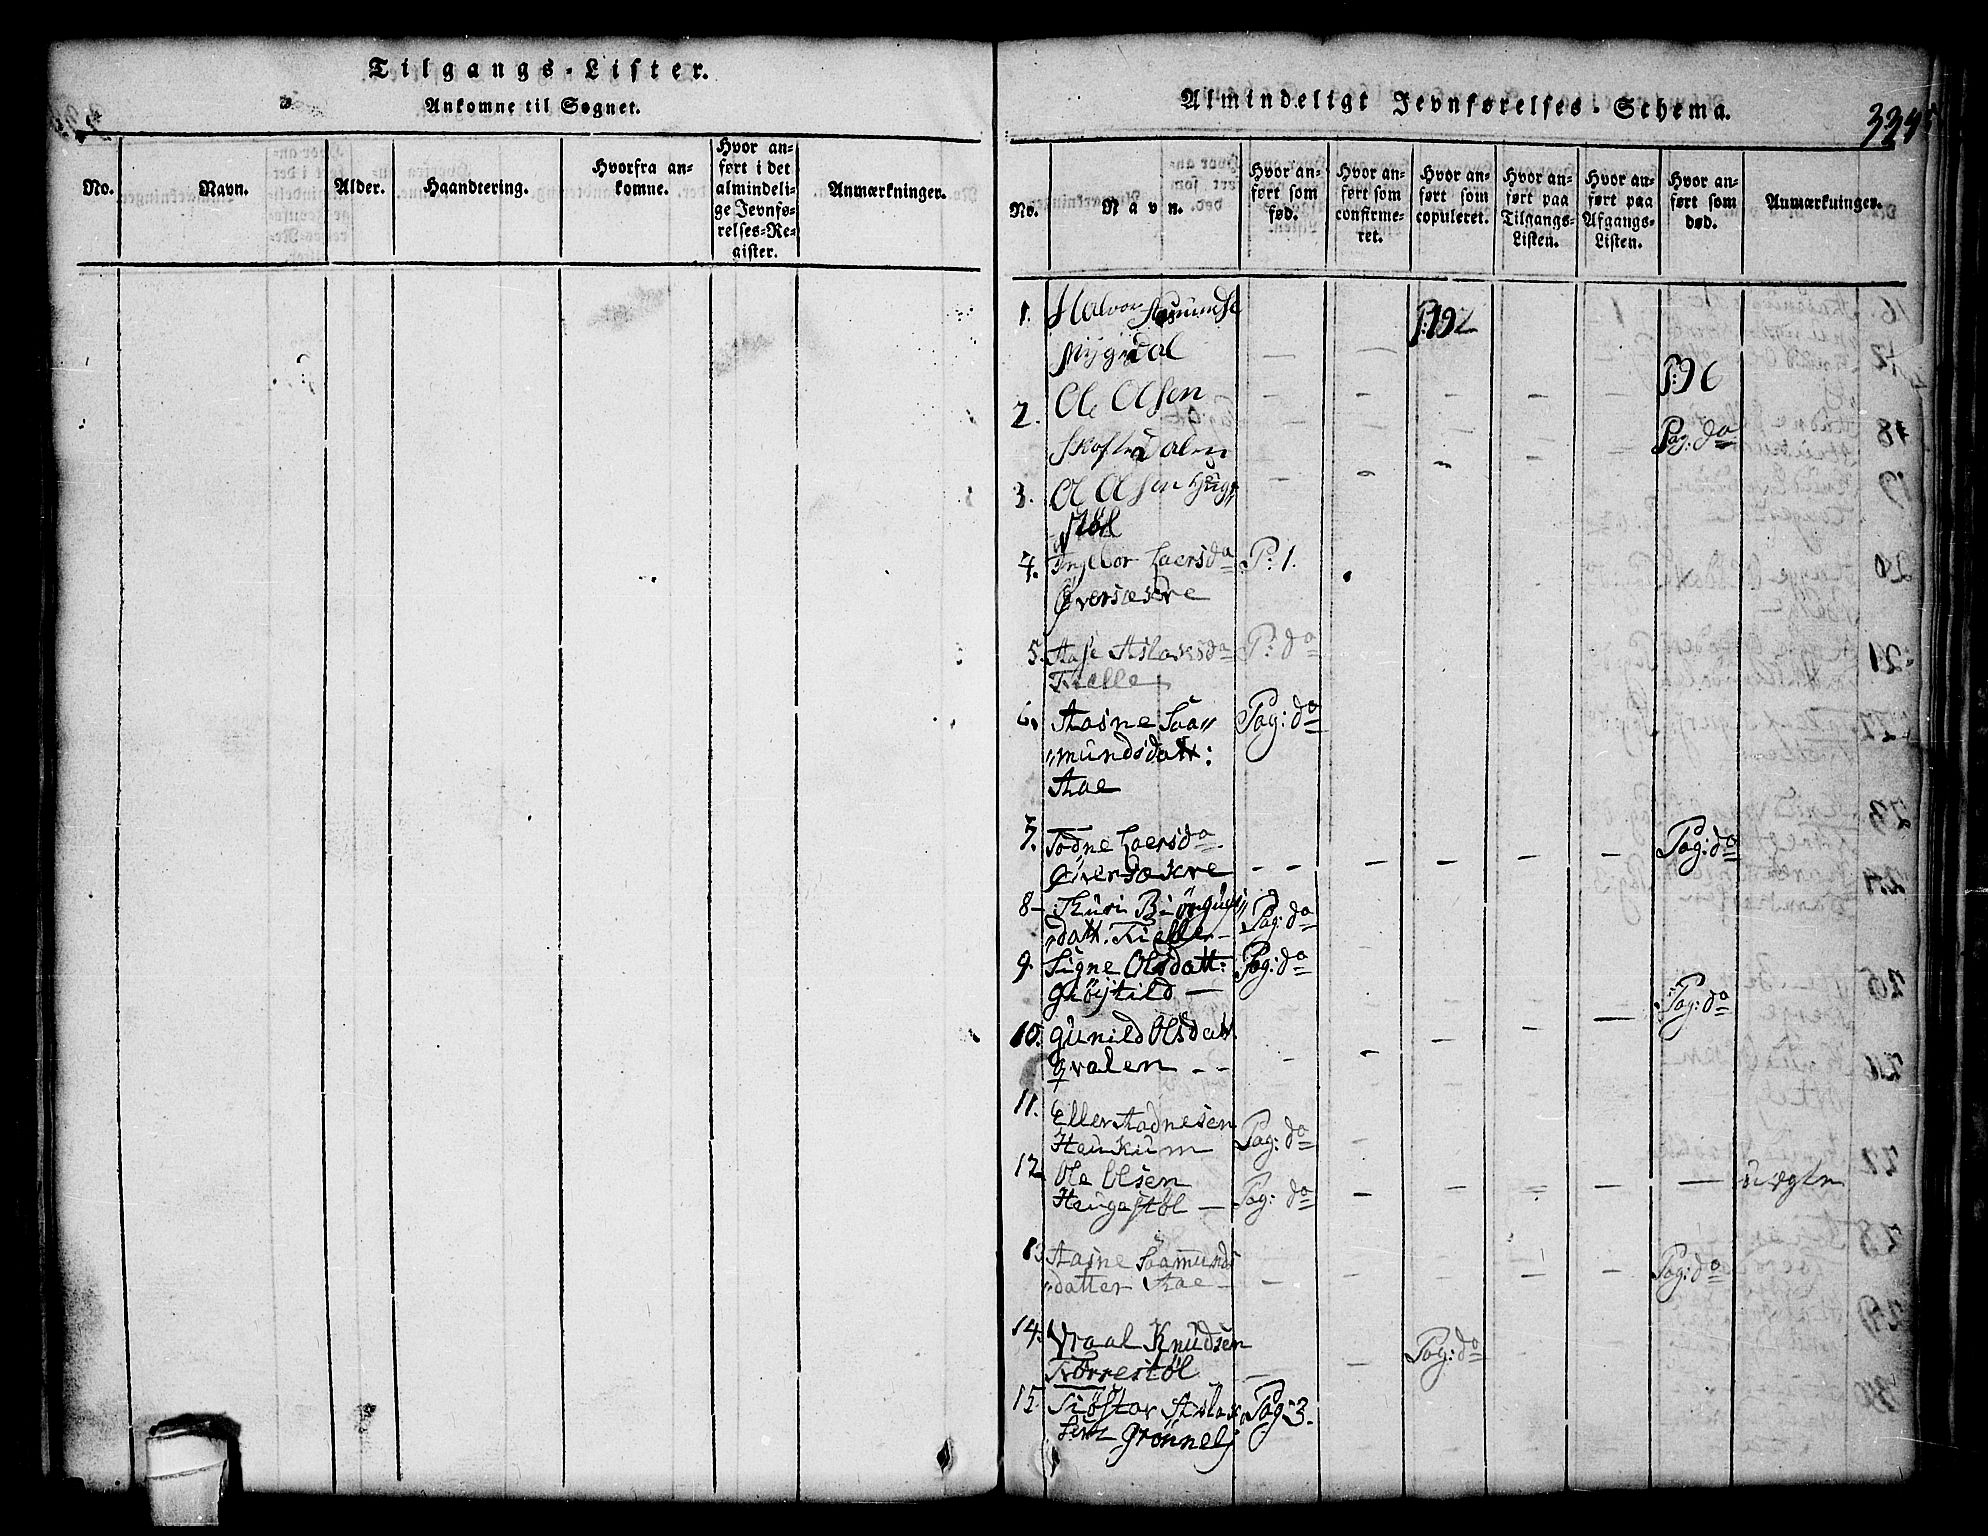 Tilgangs-Lister.
Ankomne til Sognet.
No.
Navn.
Alder.
Haandtering.
Hvorfra an-
komne.
Hvor an-
ført i det
almindeli-
ge Jevnfø-
relses-Re-
gister.
Anmærkninger.
Almindeligt Jevnførelses-Schema.
334
No.
Navn.
Hvor an-
ført som
fød.
Hvor an-
ført som
confirme-
ret.
Hvor an-
ført som
copuleret.
Hvor an-
ført paa
Tilgangs-
Listen.
Hvor an-
ført paa
Afgangs-
Listen.
Hvor an-
ført som
død.
Anmærkninger.
1. Halvor Aasmundse P:192
Nygdal
P:96
2. Ole Olsen
Pag: do
Skoftedalen
3. Ole Olsen Hug-
støl
4. Ingebor Laersda P: 1.
Øversæskre
5. Aase Aslaksda P: do
Tielle
6. Aasne Saa- Pag: do
mundsdatt:
Aae
7. Todne Laersda Pag: do
Øversæskre
8 Turi Biørgufs Pag: do
datt. Tielle
9. Signe Olsdatt: Pag: do
Grøjtild
Pag: do
10. Gunild Olsdatt
Qvalen
11. Ellev Aadnesen
Haukum Pag: do
12 Ole Olsen
Haugestøl Pag: do uægte
13 Aasne Saamunds
datter Aae Pag: do
14. Vraal Knudsen
Torrestøl Pag: do
15. Tiøstar Aslak Pag: 3.
sen Grønnelj